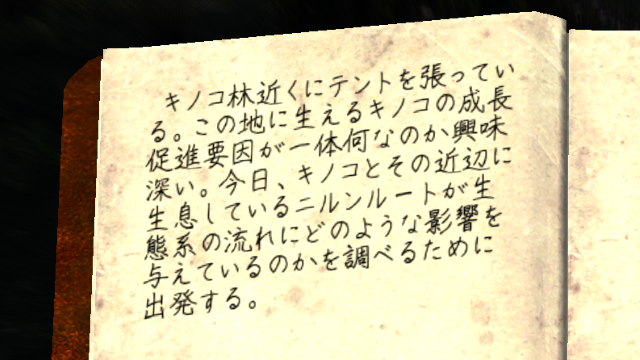 キノコ林近くにテントを張ってい
る。この地に生えるキノコの成長
促進要因が一体何なのか興味
深い。今日、キノコとその近辺に
生息しているニルンルートが生
態系の流れにどのような影響を
与えているのかを調べるために
出発する。